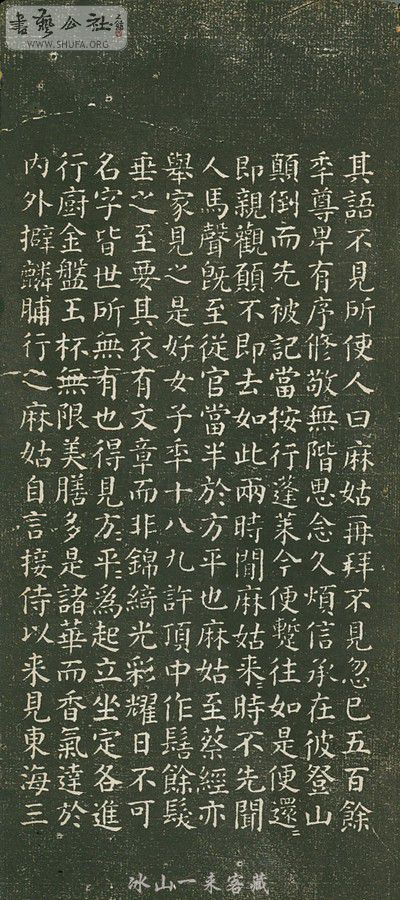 書藝公社
WWW.SHUFA.ORG
其語不見所使人曰麻姑再拜不見忽已五百餘
年尊卑有序修敬無階思念久煩信承在彼登山
顛倒而先被記當按行蓬萊今便蹔往如是便還〻
即親觀願不即去如此兩時間麻姑来時不先聞
人馬聲既至從官當半於方平也麻姑至蔡經亦
舉家見之是好女子年十八九許頂中作髻餘髮
垂之至要其衣有文章而非錦綺光彩耀日不可
名字皆世所無有也得見方〻平〻為起立坐定各進
行廚金盤玉杯無限美膳多是諸華而香氣達於
内外擗麟脯行之麻姑自言接侍以来見東海三
冰山一来客藏